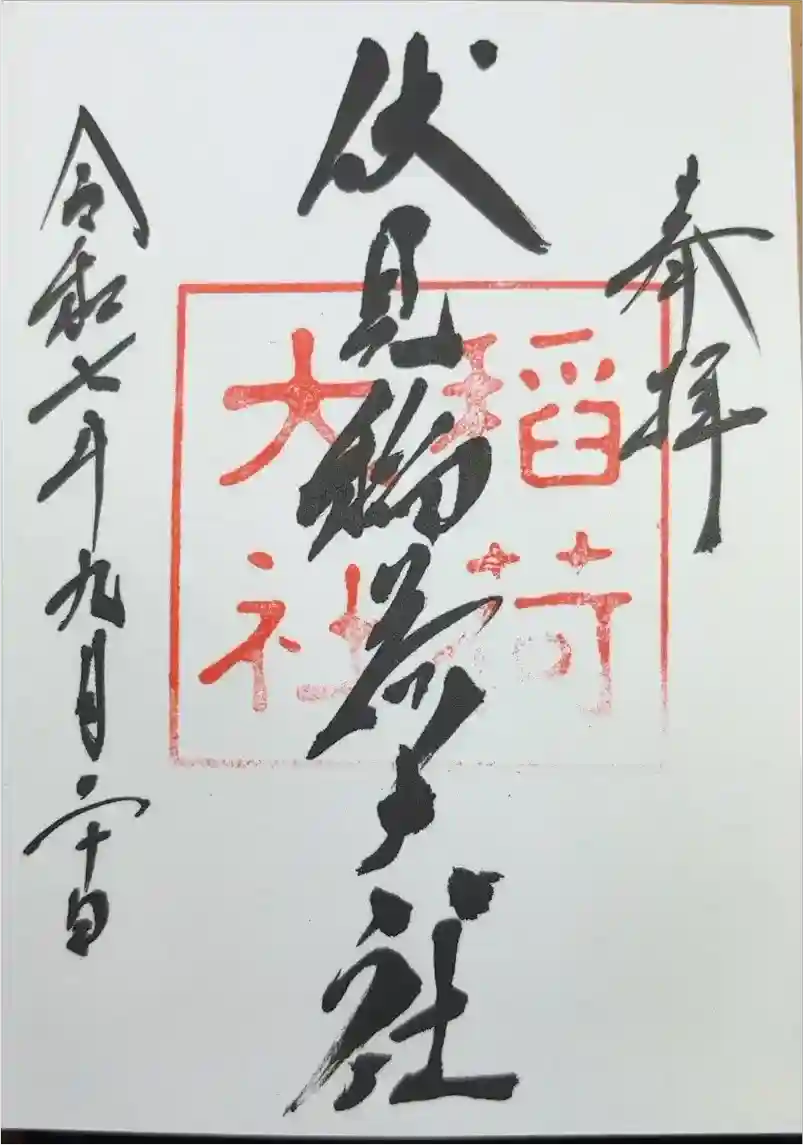 奉拝
伏見稲荷大社
稻荷
大社
令和七年九月二十日